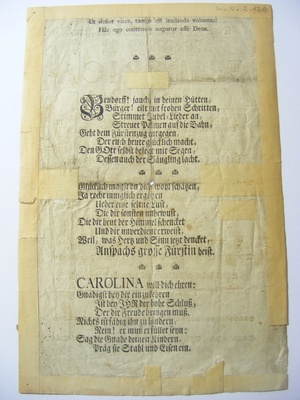 Ut desint vires, tamen est laudanda voluntas:
Hâc ego contentos auguror esse Deos.
jauchz in deinen Hütten,
Bürger! eilt mit frohen Schritten,
Stimmet Jubel-Lieder an,
Streuet Palmen auf die Bahn,
Geht dem Fürstenzug entgegen,
Der euch heute glücklich macht,
Den GOtt selbst belegt mit Segen,
Dessen auch der Säugling lacht.
Glücklich magst du dich wohl schätzen,
Ja recht inniglich ergötzen
Ueber eine seltne Lust,
Die dir sonsten unbewust,
Die dir heut der Himmel schencket
Und dir unverdient erweist,
Weil, was Hertz und Sinn jetzt dencket,
Anspachs grosse Fürstin heist.
CAROLINA will dich ehren:
Gnädigst bey dir einzukehren
Ist bey IHR der hohe Schluß,
Der dir Freude bringen muß.
Nichts ist fähig ihn zu hindern,
Nein! er muß erfüllet seyn:
Sag die Gnade deinen Kindern,
Präg sie Stahl und Eisen ein.